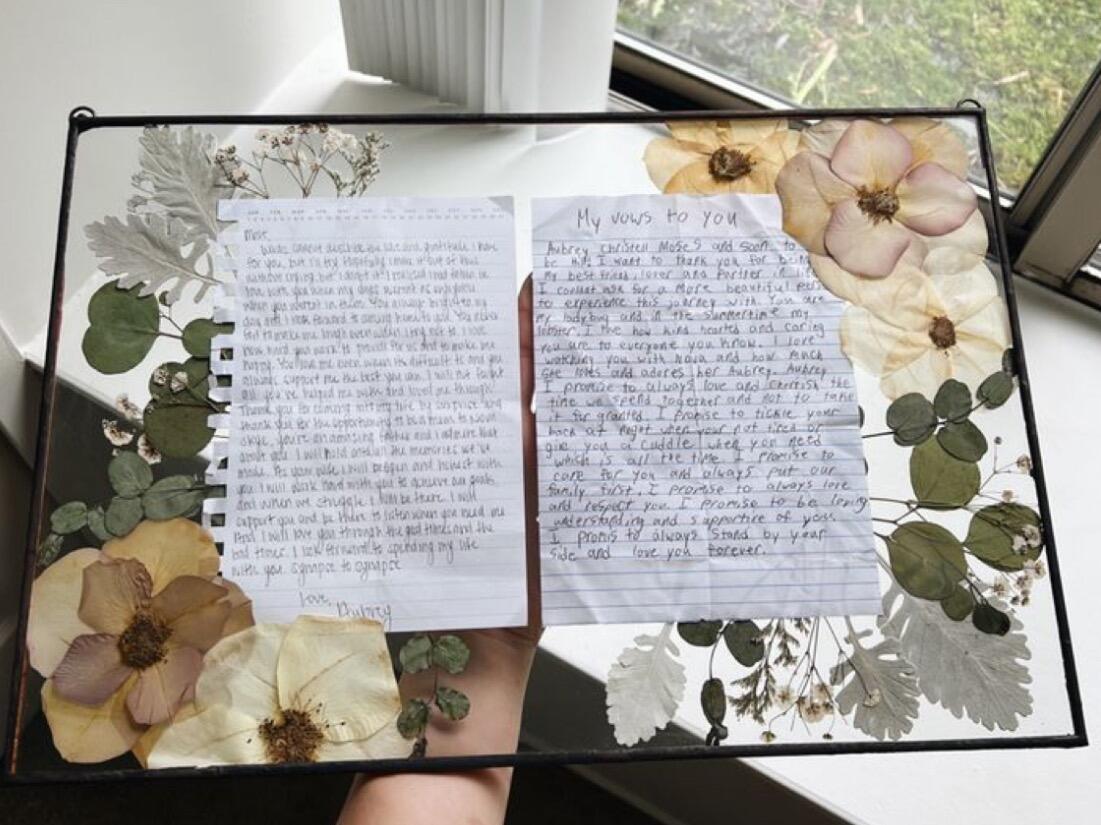 Mose,
Words cannot describe the love and gratitude I have
for you, but I'll try. Hopefully I make it out of this
without crying but I doubt it! I realized I had fallen in
love with you when my days weren't as enjoyable
when you weren't in them. You always brighten my
day and I look forward to coming home to you. You never
fail to make me laugh even when I try not to. I love
how hard you work to provide for us and to make me
happy. You love me even when its difficult to and you
always support me the best you can. I will not forget
all you've helped me with and loved me through.
Thank you for coming into my life by surprise and
thank you for the opportunity to be a mom to Nova
Skye, you're an amazing father and I admire that
about you. I will hold onto all the memories we've
made. As your wife I will be open and honest with
you. I will work hard with you to achieve our goals
and when we struggle I will be there. I will
support you and be there to listen when you need me
and I will love you through the good times and the
bad times. I look forward to spending my life
with you. Synapse to synapse
Love,
Aubrey
My vows to you
Aubrey Christell Moses and soon to
be Hill I want to thank you for being
my best friend, lover and partner in life
I couldnt ask for a more beautiful
to experience this journey with. You are
my ladybug and in the summertime my
lobster. I how kind hearted and caring
you are to everyone you know. I love
watching you with Nova and how much
she loves and adores her Aubrey. Aubrey
I promise to always love and cherish the
time we spend together and not to take
it for granted. I promise to tickle your
back at night when your not tired or
give you a cuddle when you need
which is all the time. I promise to
care for you and always put our
family first. I promise to always love
and respect you. I promise to be loving
understanding and supportive of you.
I promis to always stand by your
side and love you forever.